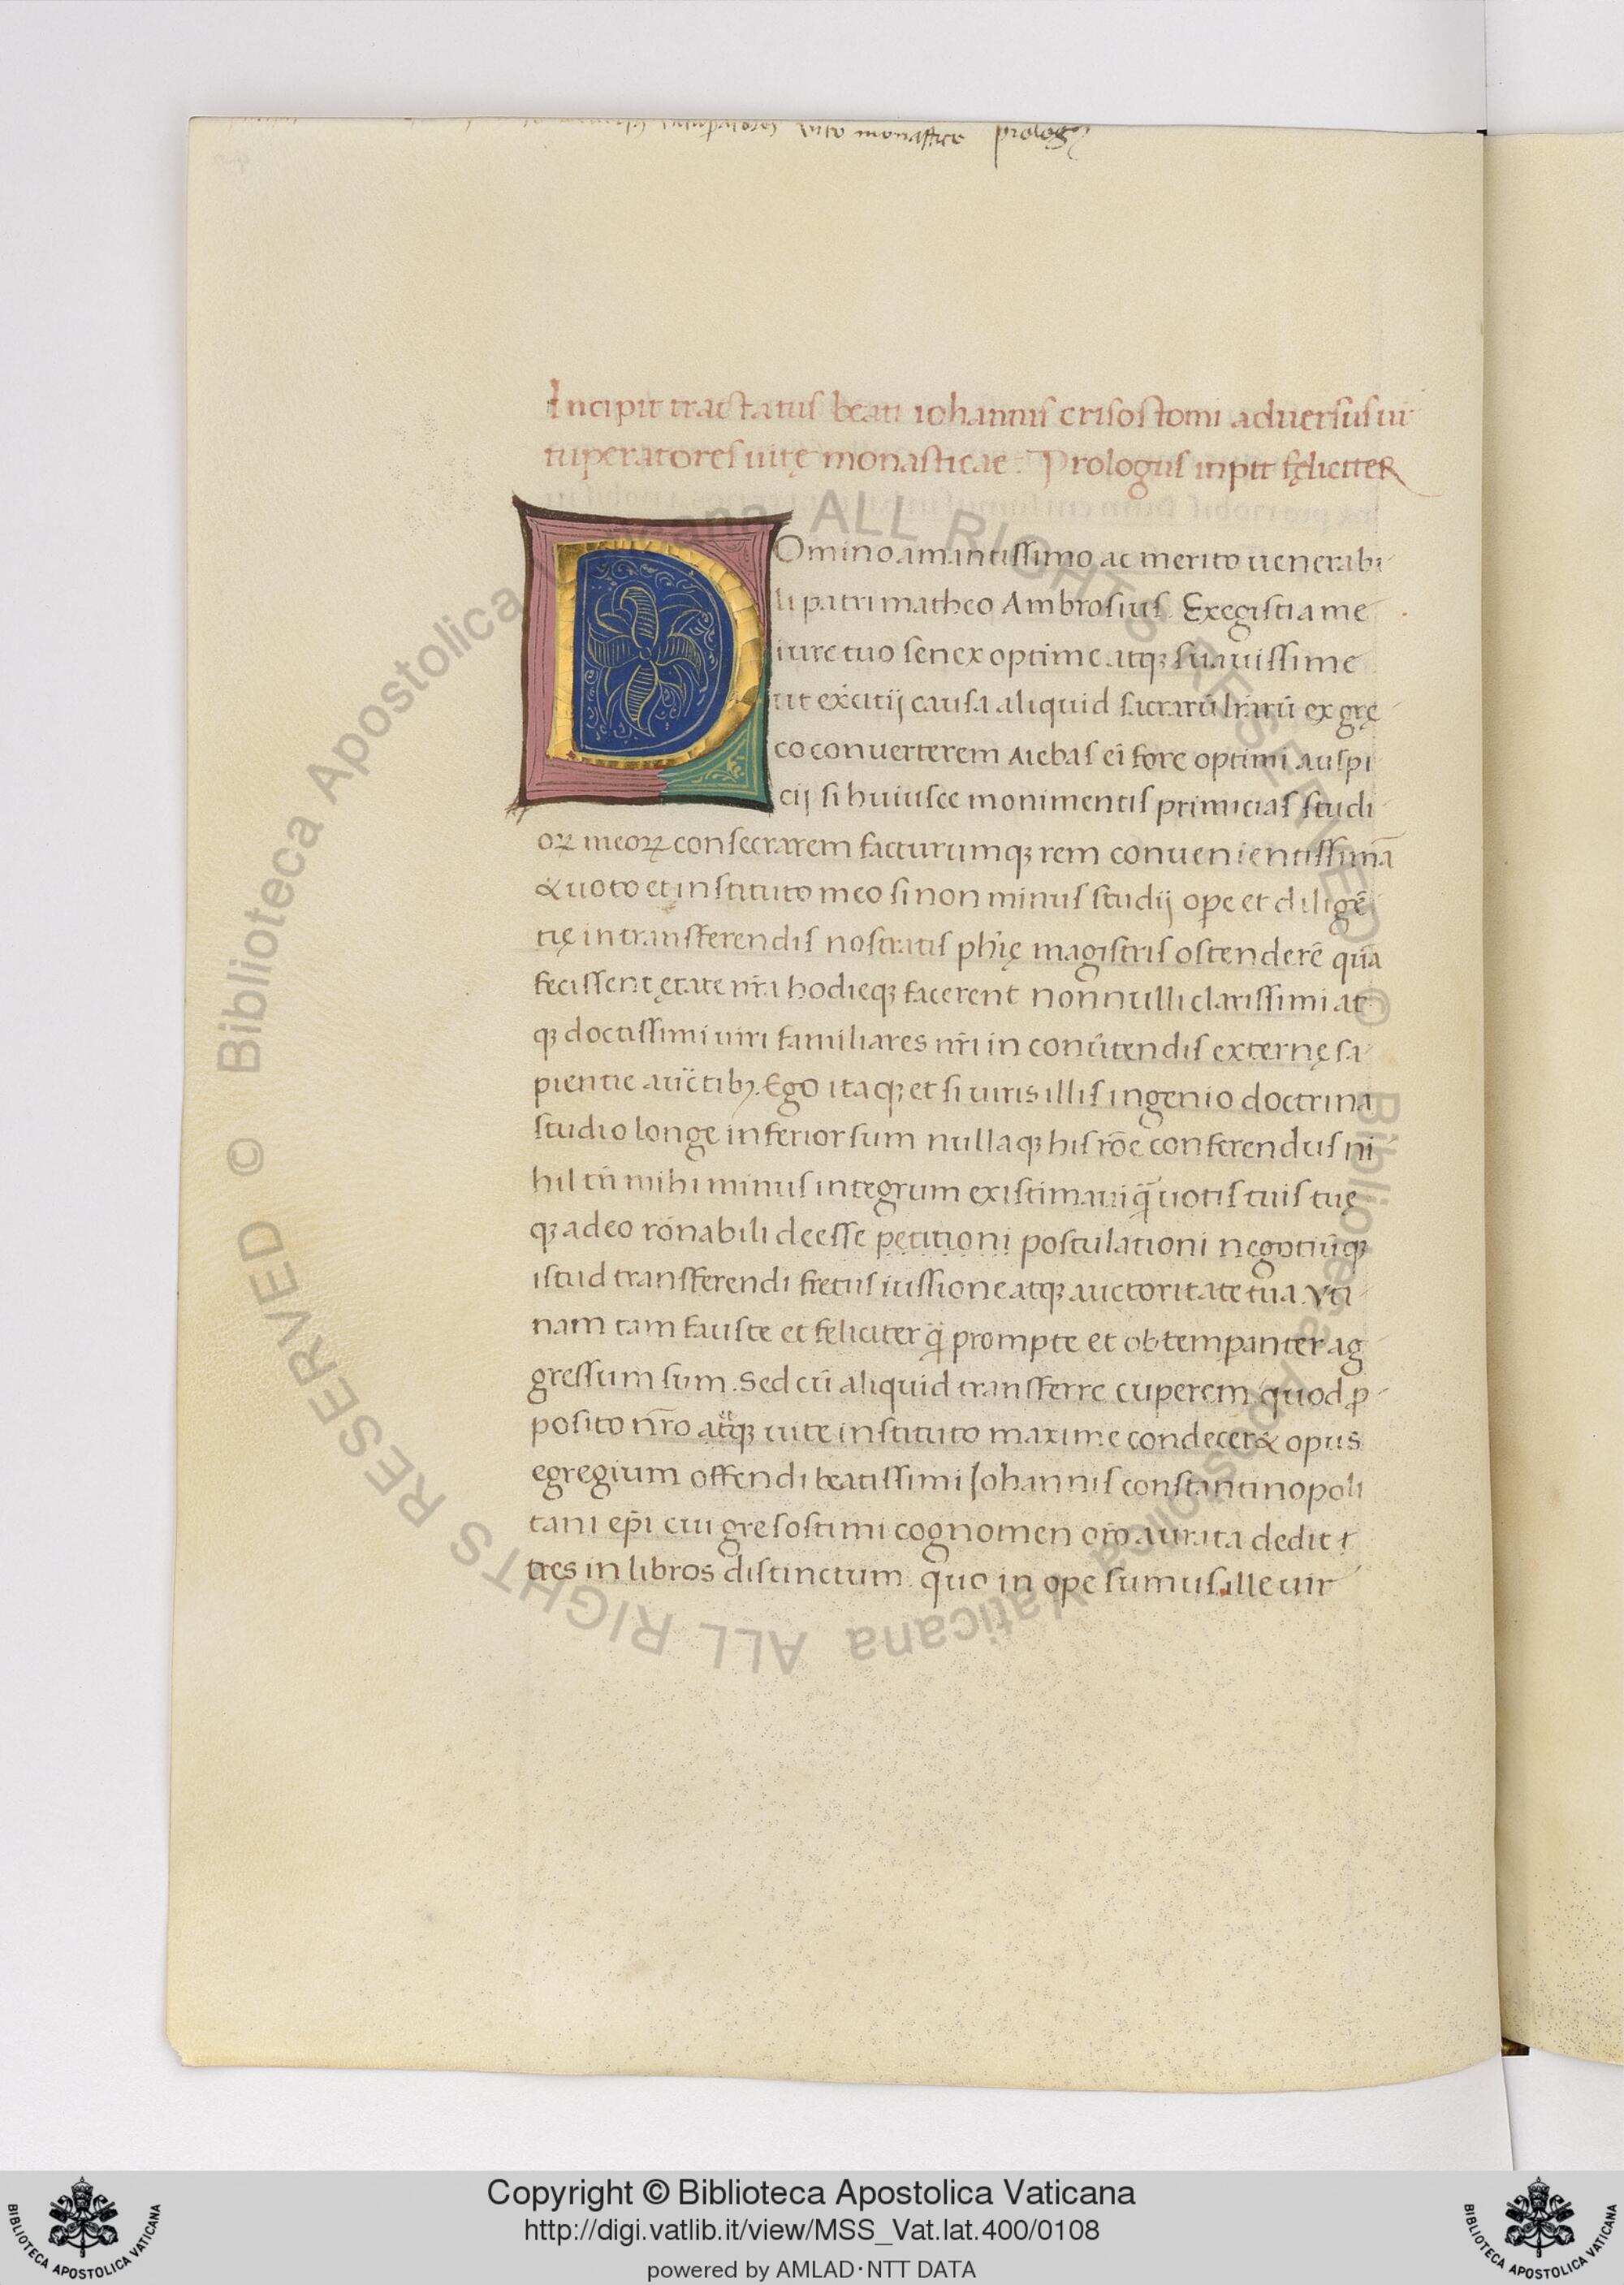 monasticae prolog
Incipit tractatus beati iohannis crisostomi aduersus ui
tuperatores uitę monasticae. Prologus inpit fęliciteR
DOmino amantissimo ac merito uenerabi
li patri matheo Ambrosius. Exegisti a me
iure tuo senex optime atq; suauissime
ut exc̓itij causa aliquid sacrarū lr̄arū ex grę
co conuerterem Aiebas ei̅ fore optimi auspi
cij si huiusce monimentis primicias studi
oꝝ meoꝝ consecrarem facturumq; rem conuenientissimā
& uoto et instituto meo si non minus studij opę et diligē
tię in transferendis nostratis ph̓ię magistris ostenderē quā
fecissent ętate nr̄a hodieq; facerent nonnulli clarissimi at
q; doctissimi uiri familiares nr̄i in conu̓tendis externę sa
pientie auctib; Ego itaq; et si uiris illis ingenio doctrina
studio longe inferior sum nullaq; his rōe conferendus ni
hil tn̄ mihi minus integrum existimaui q̄ uotis tuis tuę
q; adeo rōnabili deesse petitioni postulationi negotiūq;
istud transferendi fretus iussione atq; auctoritate tua. Vti
nam tam fauste et feliciter q̄ prompte et obtemꝑanter ag
gressum sum. Sed cū aliquid transferre cuperem quod ꝓ
posito nr̄o atq; uite instituto maxime condecer& opus
egregium offendi beatissimi Iohannis constantinopoli
tani ep̄i cui gresostimi cognomen oro aurata dedit
tres in libros distinctum. quo in opę sumus ille uir
© Biblioteca Apostolica Vaticana ALL RIGHTS RESERVED
© Biblioteca Apostolica Vaticana ALL RIGHTS RESERVED
Copyright © Biblioteca Apostolica Vaticana
http://digi.vatlib.it/view/MSS_Vat.lat.400/0108
powered by AMLAD·NTT DATA
BIBLIOTECA APOSTOLICA VATICANA
BIBLIOTECA APOSTOLICA VATICANA